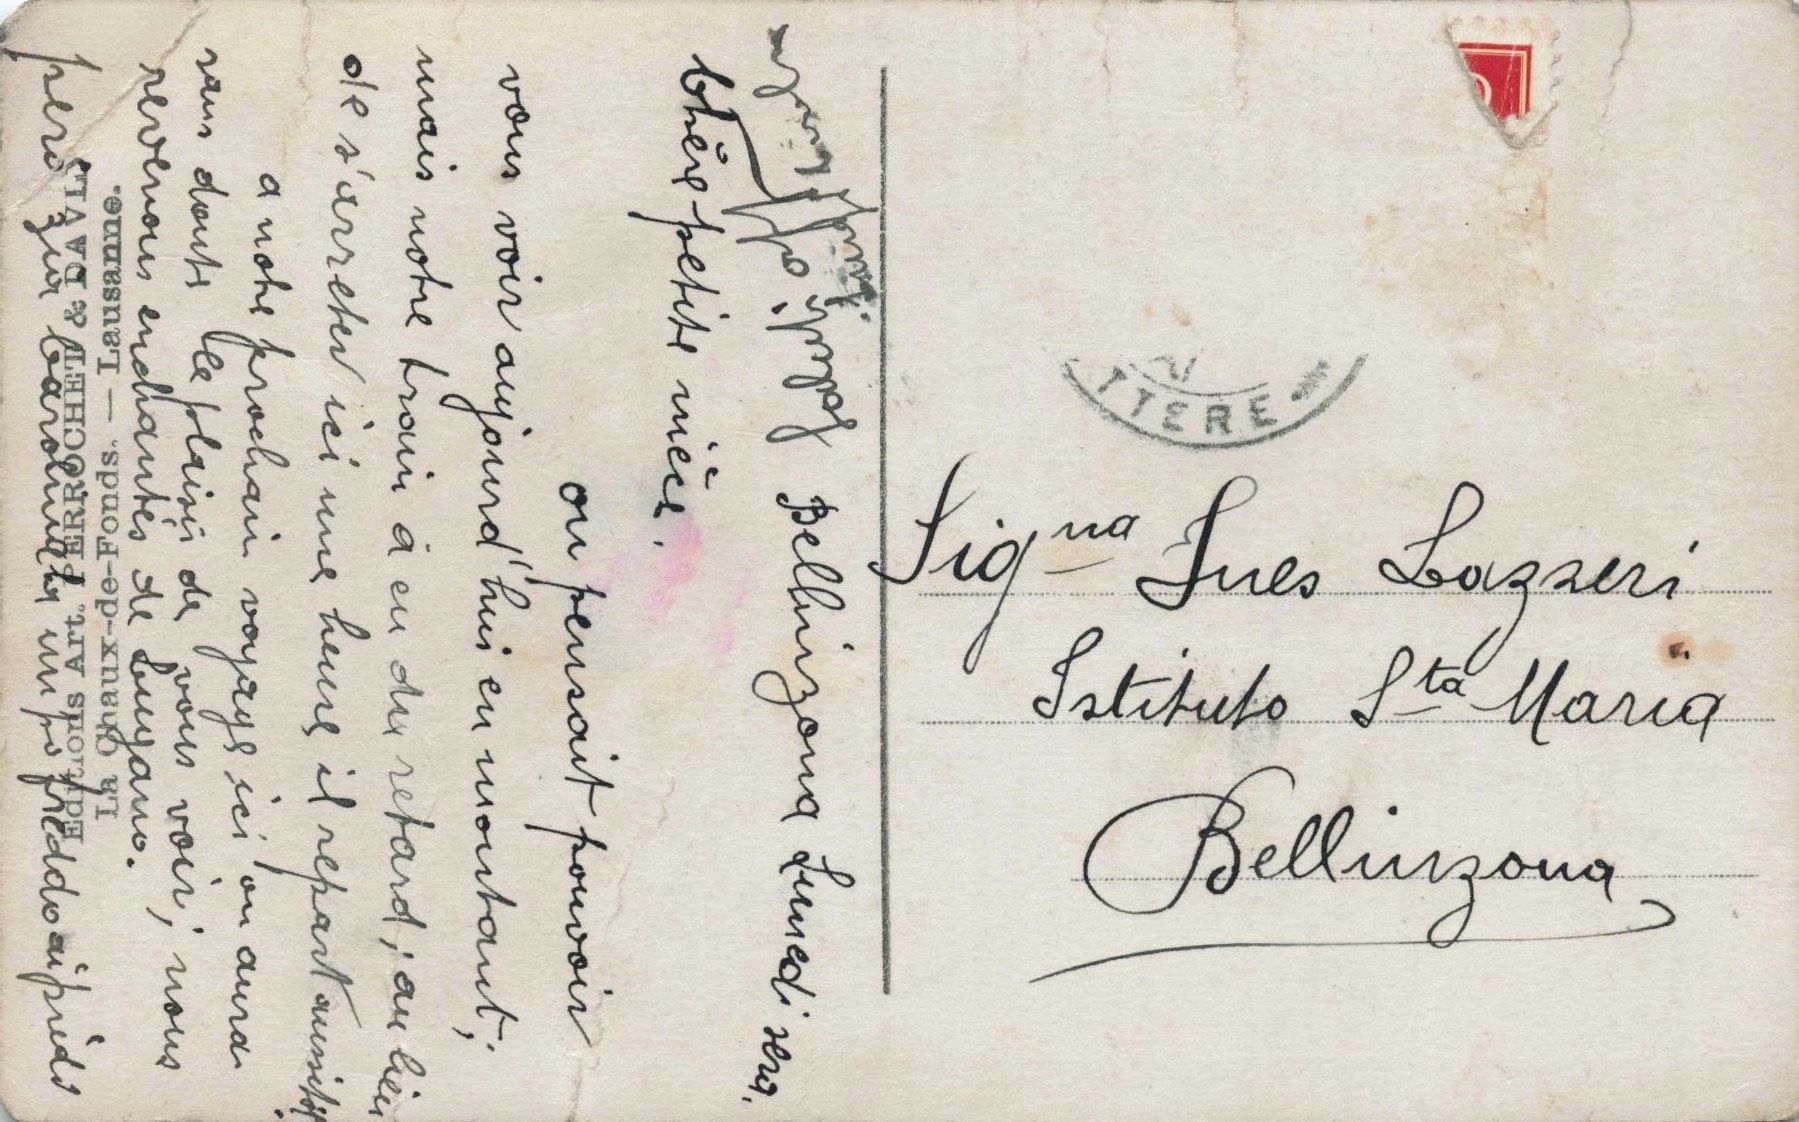 Bellinzona Lunedi sera.
Chère petite nièce.
on pensait pouvoir
vous voir aujourd'hui en montant;
mais notre train à eu du retard; au lieu
de s'arreter ici une heure il repart aussitôt.
a notre prochain voyage ici on aura
sans doute le plaisir de vous voir; nous
revenons enchantés de Lugano.
pero zia
un po
Editions Art. PERROCHET & DAVID
La Chaux-de-Fonds. — Lausanne.
TTERE
Sigⁿᵃ Ines Lazzeri
Istituto Sta Maria
Bellinzona